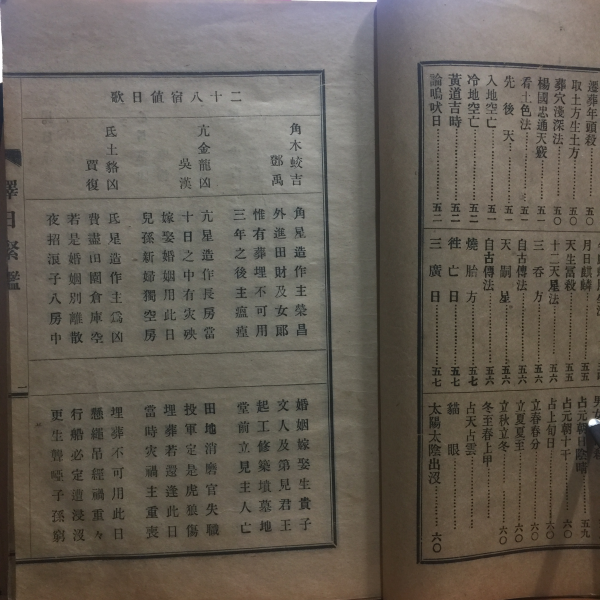 遷葬年頭殺……五〇
取土方生土方……五〇
葬穴淺深法……五〇
楊國忠通天竅……五一
看土色法……五一
先後天……五一
入地空亡……五一
冷地空亡……五一
黃道吉時……五二
論鳴吠日……五二
月日麒麟……
天生富殺……五六
十二天星法……五六
自古傳法……五六
三吞方……五六
天嗣星……五六
自古傳法……五七
燒胎方……五七
徃亡日……五七
三廣日……五七
占元朝日陰晴……五九
占元朝十干……六〇
占上旬日……六〇
立春春分……六〇
立夏夏至……六〇
立秋立冬……六〇
冬至春上甲……六〇
占天占雲……六〇
貓眼……六〇
太陽太陰出沒……六〇
二十八宿値日歌
角木蛟吉
鄧禹
角星造作主榮昌
外進田財及女郎
惟有葬埋不可用
三年之後主瘟瘟
婚姻嫁娶生貴子
文人及第見君王
起工修築墳墓地
堂前立見主人亡
亢金龍凶
吳漢
亢星造作長房當
十日之中有灾殃
嫁娶婚姻用此日
兒孫新婦獨空房
田地消磨官失職
投軍定是虎狼傷
埋葬若還逢此日
當時灾禍主重喪
氐土貉凶
賈復
氐星造作主爲凶
費盡田園倉庫空
若是婚姻別離散
夜招浪子入房中
埋葬不可用此日
懸繩吊經禍重々
行船必定遭浸沒
更生聾啞子孫窮
擇日緊鑑
一